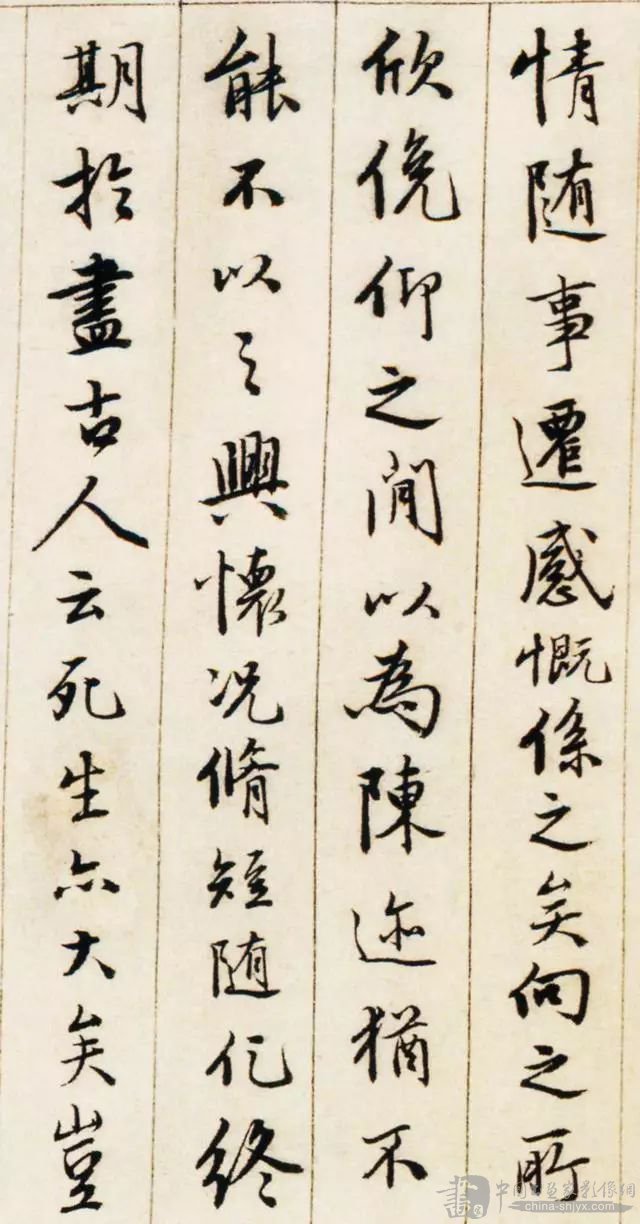 情随事遷感慨係之矣向之所
欣俛仰之間以為陳迹猶不
能不以之興懷况脩短随化終
期於盡古人云死生亦大矣豈
china-shjyx.com